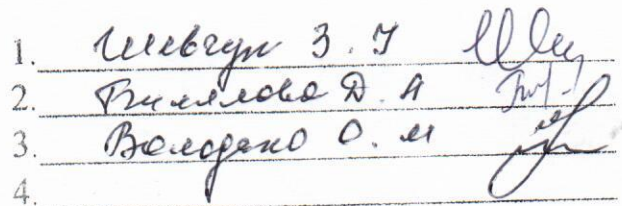 1. Шевчук З. І
2. Билялова Д. А
3. Володько О. М
4.